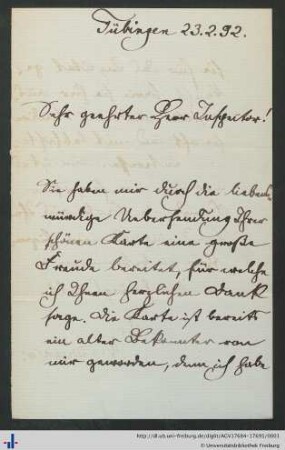 Tübingen 23.2.92.
Sehr geehrter Herr Inspector!
Sie haben mir durch die liebens-
würdige Uebersendung Ihrer
schönen Karte eine große
Freude bereitet, für welche
ich Ihnen herzlichen Dank
sage. Die Karte ist bereits
ein alter Bekannter von
mir geworden, denn ich habe
http://dl.ub.uni-freiburg.de/diglit/
© Universitätsbibliothek Freiburg